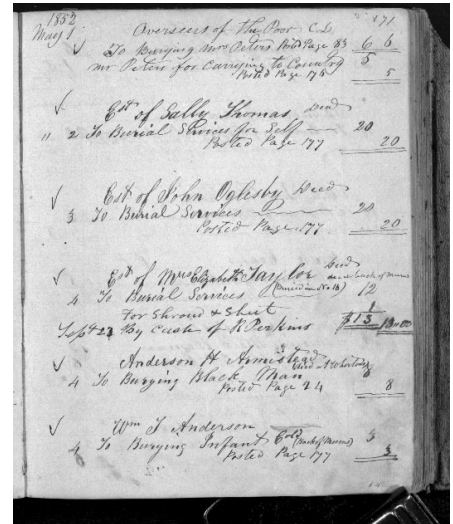 1852 171
May 1 Overseers of the Poor C.L.
To Burying Mrs Peters Posted Page 83 6 6
Mr Peters for Carrying to Country 5
Posted Page 176 5
Est of Sally Thomas Decd
" 2 To Burial Services for Self 20
Posted Page 177 20
Est of John Oglesby Decd
3 To Burial Services 20
Posted Page 177 20
Est of Mrs Elizabeth Taylor Decd
4 To Burial Services 12
For Shroud & Sheet 1
Sept 23 By Cash of R Perkins $13 13.00
Anderson H Armistead
4 To Burying Black Man 8
Posted Page 24 8
Wm J Anderson
4 To Burying Infant 3
Posted Page 177 3